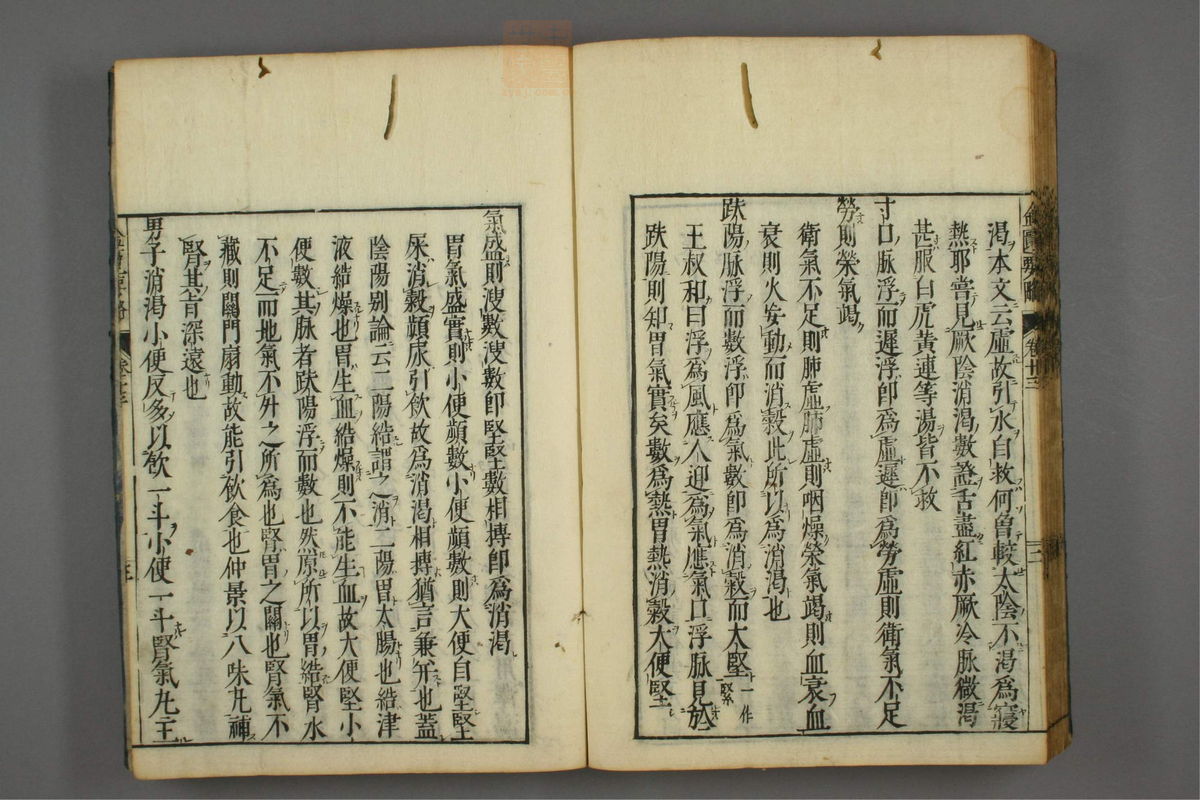 渴本文云虛故引水自救何曾較太陰不渴爲寢
熱耶嘗見厥陰消渴數證舌盡紅赤厥冷脉微渴
甚服白虎黃連等湯皆不救
寸口脉浮而遲浮卽爲虛遲卽爲勞虛則衛氣不足
勞則榮氣竭
衛氣不足則肺虛肺虛則咽燥榮氣竭則血衰血
衰則火妄動而消穀此所以爲消渴也
趺陽脉浮而數浮卽爲氣數卽爲消穀而大堅一作緊
王叔和曰浮爲風應人迎爲氣應氣口浮脉見於
趺陽則知胃氣實矣數爲熱胃熱消穀大便堅
金匱要略 卷十三 三
氣盛則溲數溲數卽堅堅數相搏卽爲消渴
胃氣盛實則小便頻數小便頻數則大便自堅堅
尿消穀頻尿引飲故爲消渴相搏猶言兼并也蓋
陰陽别論云二陽結謂之消二陽胃太腸也結津
液結燥也胃生血結燥則不能生血故大便堅小
便數其脉者趺陽浮而數也然原所以胃結腎水
不足而地氣不升之所爲也腎胃之關也腎氣不
藏則關門扇動故能引飮食也仲景以八味丸補
腎其旨深遠也
男子消渴小便反多以飮一斗小便一斗腎氣丸主